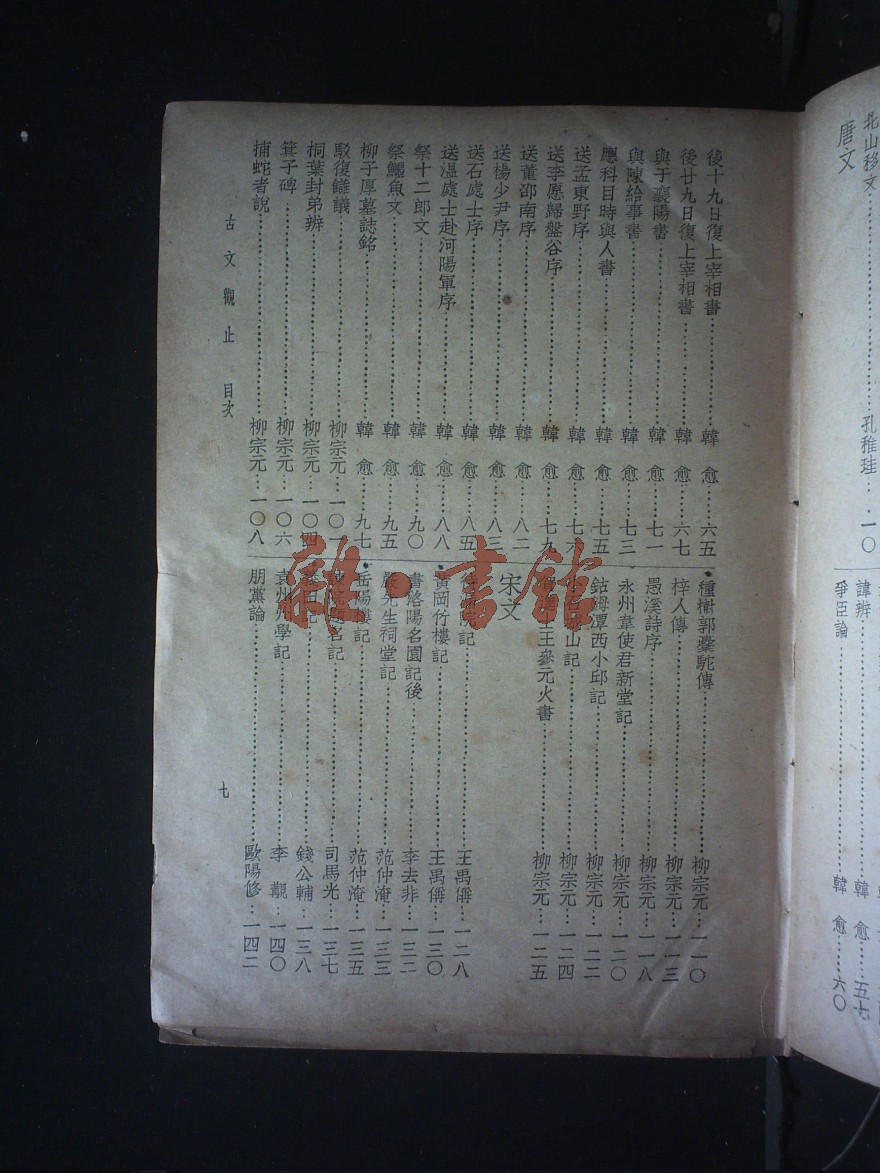 北山移文 孔稚珪 一〇
唐文
諱辨 韓愈 五七
爭臣論 韓愈 六〇
後十九日復上宰相書 韓愈 六五
後廿九日復上宰相書 韓愈 六七
與于襄陽書 韓愈 七一
與陳給事書 韓愈 七三
應科目時與人書 韓愈 七五
送孟東野序 韓愈 七六
送李愿歸盤谷序 韓愈 七九
送董邵南序 韓愈 八二
送楊少尹序 韓愈 八三
送石處士序 韓愈 八五
送温處士赴河陽軍序 韓愈 八八
祭十二郎文 韓愈 九〇
祭鱷魚文 韓愈 九五
柳子厚墓誌銘 韓愈 九七
駁復讎議 柳宗元 一〇一
桐葉封弟辨 柳宗元 一〇四
箕子碑 柳宗元 一〇六
捕蛇者說 柳宗元 一〇八
種樹郭橐駝傳 柳宗元 一一〇
梓人傳 柳宗元 一一三
愚溪詩序 柳宗元 一一八
永州韋使君新堂記 柳宗元 一二〇
鈷鉧潭西小邱記 柳宗元 一二二
山記 柳宗元 一二四
王參元火書 柳宗元 一二五
宋文
記 王禹偁 一二八
黃岡竹樓記 王禹偁 一三〇
書洛陽名園記後 李去非 一三二
嚴先生祠堂記 范仲淹 一三三
岳陽樓記 范仲淹 一三五
名記 司馬光 一三七
記 錢公輔 一三八
袁州州學記 李覯 一四〇
朋黨論 歐陽修 一四二
古文觀止 目次
七
雜·書館